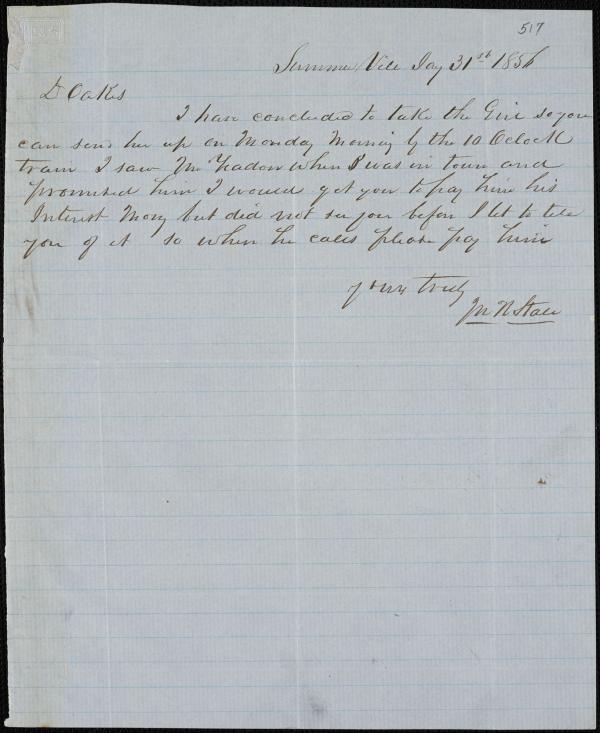 517
Summer Ville Jay 31st 1856
D Oakes
I have concluded to take the Girl so you
can send her up on Monday Morning by the 10 Oclock
train I saw Mr when I was in town and
promised him I would get you to pay him his
Interest Mony but did not see you before I left to tell
you of it so when he calls please pay him
yours truly